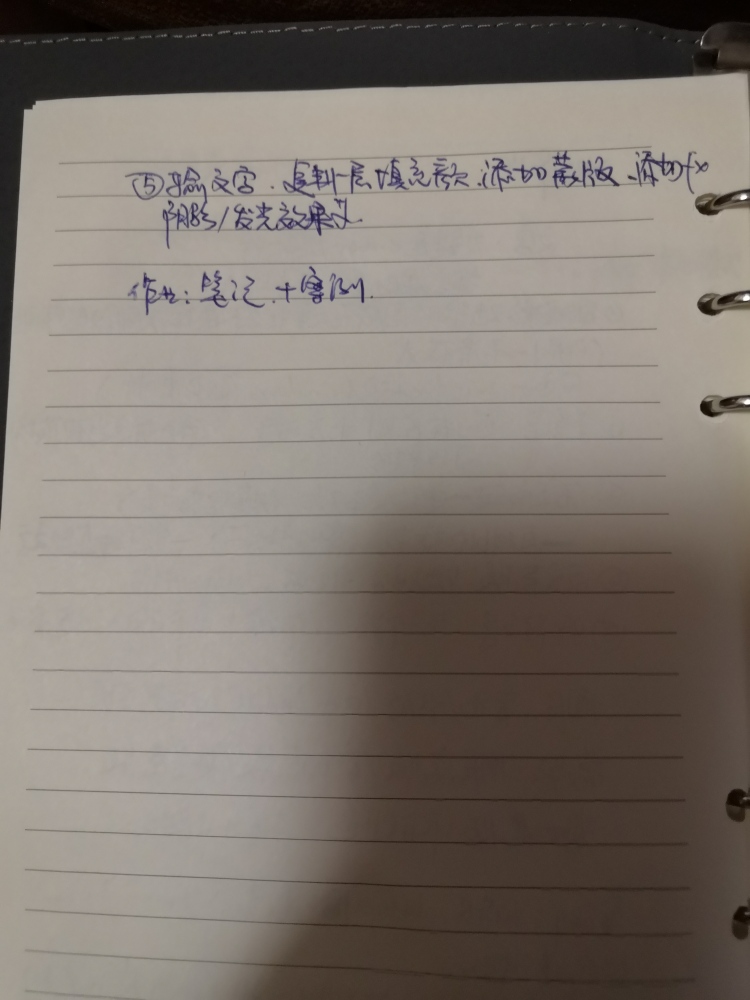 ⑤输文字.复制一层填充颜色.添加蒙版.添加fx
阴影/发光效果
作业:笔记.+案例.